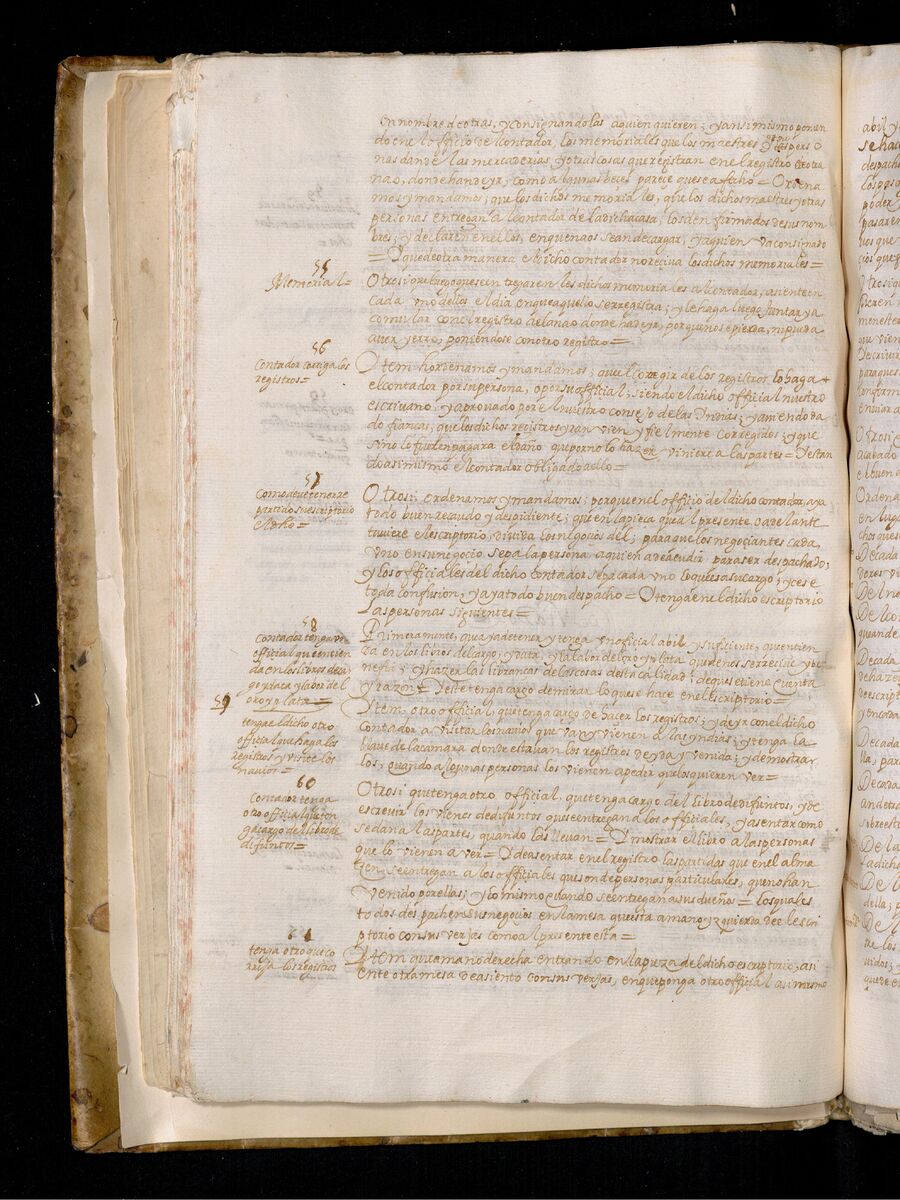 en nombre de otras, y consignandolas a quien quieren; y ansimismo ponen
do en el officio del contador, los memoriales que los maestres y otras perso
nas dan de las mercaderias, y otras cosas que registran en el registro de otra
nao, donde han de yr; como algunas beces pareçe que se a fcho = Ordena
mos y mandamos; que los dichos memoriales, que los dichos maestres y otras
personas entregan al contador de la dicha casa, los den firmados de sus nom
bres, y declaren en ellos, en que naos se an de cargar, y a quien va consignado
= Y que de otra manera el dicho contador no reciva los dichos memoriales =
55
Memorial =
Otrosi que luego que se entregaren los dichos memoriales al contador, asiente en
cada uno dellos el dia en que aquello se registra; y le haga luego juntar y a
comular con el registro de la nao donde ha de yr, porque no se pierda, ni pueda
auer yerro, poniendose con otro registro =
56
Contador corriga los
registros =
Item hordenamos y mandamos; que el corregir de los registros lo haga
el contador por su persona, o por su official; siendo el dicho official nuestro
escrivano, y aprovado por el nuestro consejo de las Indias; y auiendo da
do fianças, que los dichos registros yran vien y fielmente corregidos; y que
sino lo fueren pagara el daño que por no lo hazer, viniere a las partes = Y estan
do asimismo el contador obligado a ello =
57
Como deue tener re
partido su escriptorio
el dho =
Otrosi; ordenamos y mandamos; porque en el officio del dicho contador, aya
todo buen recaudo y despidiente; que en la pieça que al presente o adelante
tuviere el escriptorio, divida los negocios del; para que los negoçiantes cada
uno en su negocio sepa la persona a quien a de acudir para ser despachado;
y los officiales del dicho contador sepa cada uno lo que es a su cargo; y cese
toda confusion, y aya todo buen despacho = Y tenga en el dicho escriptorio
las personas siguientes =
58
Contador tenga un
official que entien
da en los libros de car
go y data y labor del
oro y plata =
Primeramente, que aya de tener y tenga un official abil y suficiente, que entien
da en los libros del cargo, y data, y la labor del oro y plata que a nos se recibe y be
nefia; y hazer las librancas de las cosas desta calidad, de que se tiene cuenta
y razon = Y este tenga cargo de mirar lo que se hace en el escriptorio =
59
tenga el dicho otro
official que haga los
registros y visite los
navios =
Item, otro official que tenga cargo de hacer los registros; y de yr con el dicho
contador a visitar los navios que van y vienen de las yndias; y tenga la
llave de la camara donde estavan los registros de yda y venida; y de mostrar
los, quando algunas personas los vienen a pedir que los quieren ver =
60
Contador tenga
otro official que ten
ga cargo del libro de
difuntos =
Otrosi que tenga otro official, que tenga cargo del libro de difuntos, y de
escrevir los vienes de difuntos que se entregan a los officiales, y asentar como
se dan a las partes, quando las llevan = Y mostrar el libro a las personas
que lo vienen a ver = Y de asentar en el registro las partidas que en el alma
zen se entregan a los officiales que son de personas particulares, que no han
venido por ellas; y lo mismo quando se entregan a sus dueños = los quales
todos despachen sus negoios en la mesa que esta a mano yzquierda de el escri
ptorio con sus verjas como al presente esta =
61
tenga otro que co
rrija los registros
Item que a mano derecha entrando en la pieza del dicho escriptorio, asi
ente otra mesa de asiento con sus verjas, en que ponga otro official asimismo